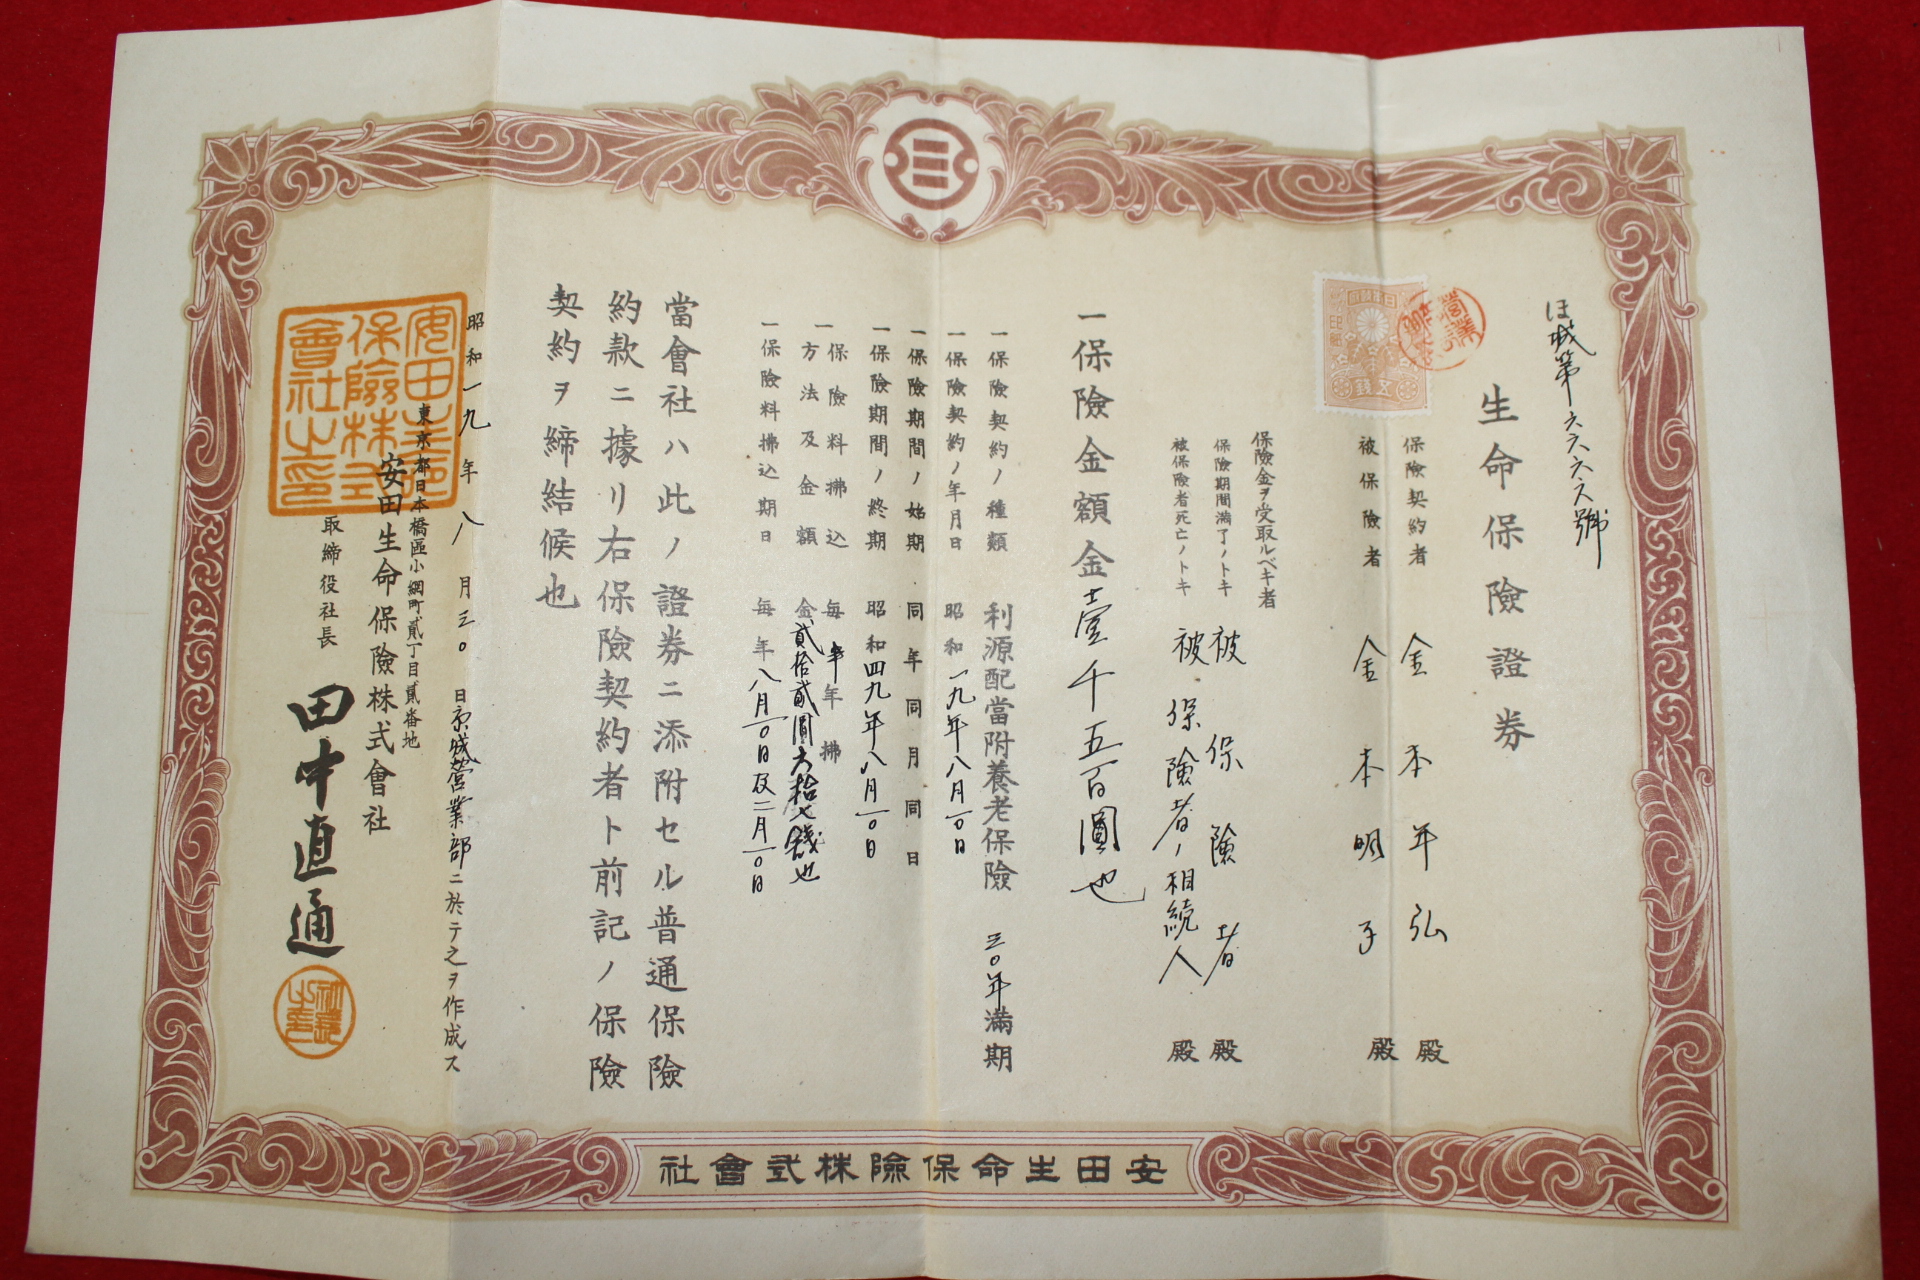 ほ城第六六六六號
生命保險證券
保險契約者 金本年弘 殿
被保險者 金本明子 殿
保險金ヲ受取ルベキ者
保險期間滿了ノトキ 被保險者 殿
被保險者死亡ノトキ 被保険者ノ相続人 殿
一保險金額金壹千五百圓也
一保險契約ノ種類 利源配當附養老保險 三〇年滿期
一保險契約ノ年月日 昭和一九年八月一〇日
一保險期間ノ始期 同年同月同日
一保險期間ノ終期 昭和四九年八月一〇日
一保險料拂込 每半年拂
方法及金額 金貳拾貳圓六拾七錢也
一保險料拂込期日 每年八月一〇日及二月一〇日
當會社ハ此ノ證券ニ添附セル普通保險
約款ニ據リ右保險契約者ト前記ノ保險
契約ヲ締結候也
昭和一九年八月三〇日京城營業部ニ於テ之ヲ作成ス
東京都日本橋區小網町貳丁目貳番地
安田生命保險株式會社
取締役社長 田中直通
安田生命
保險株式
會社之印
社長之印
五錢
安田生命保險株式會社